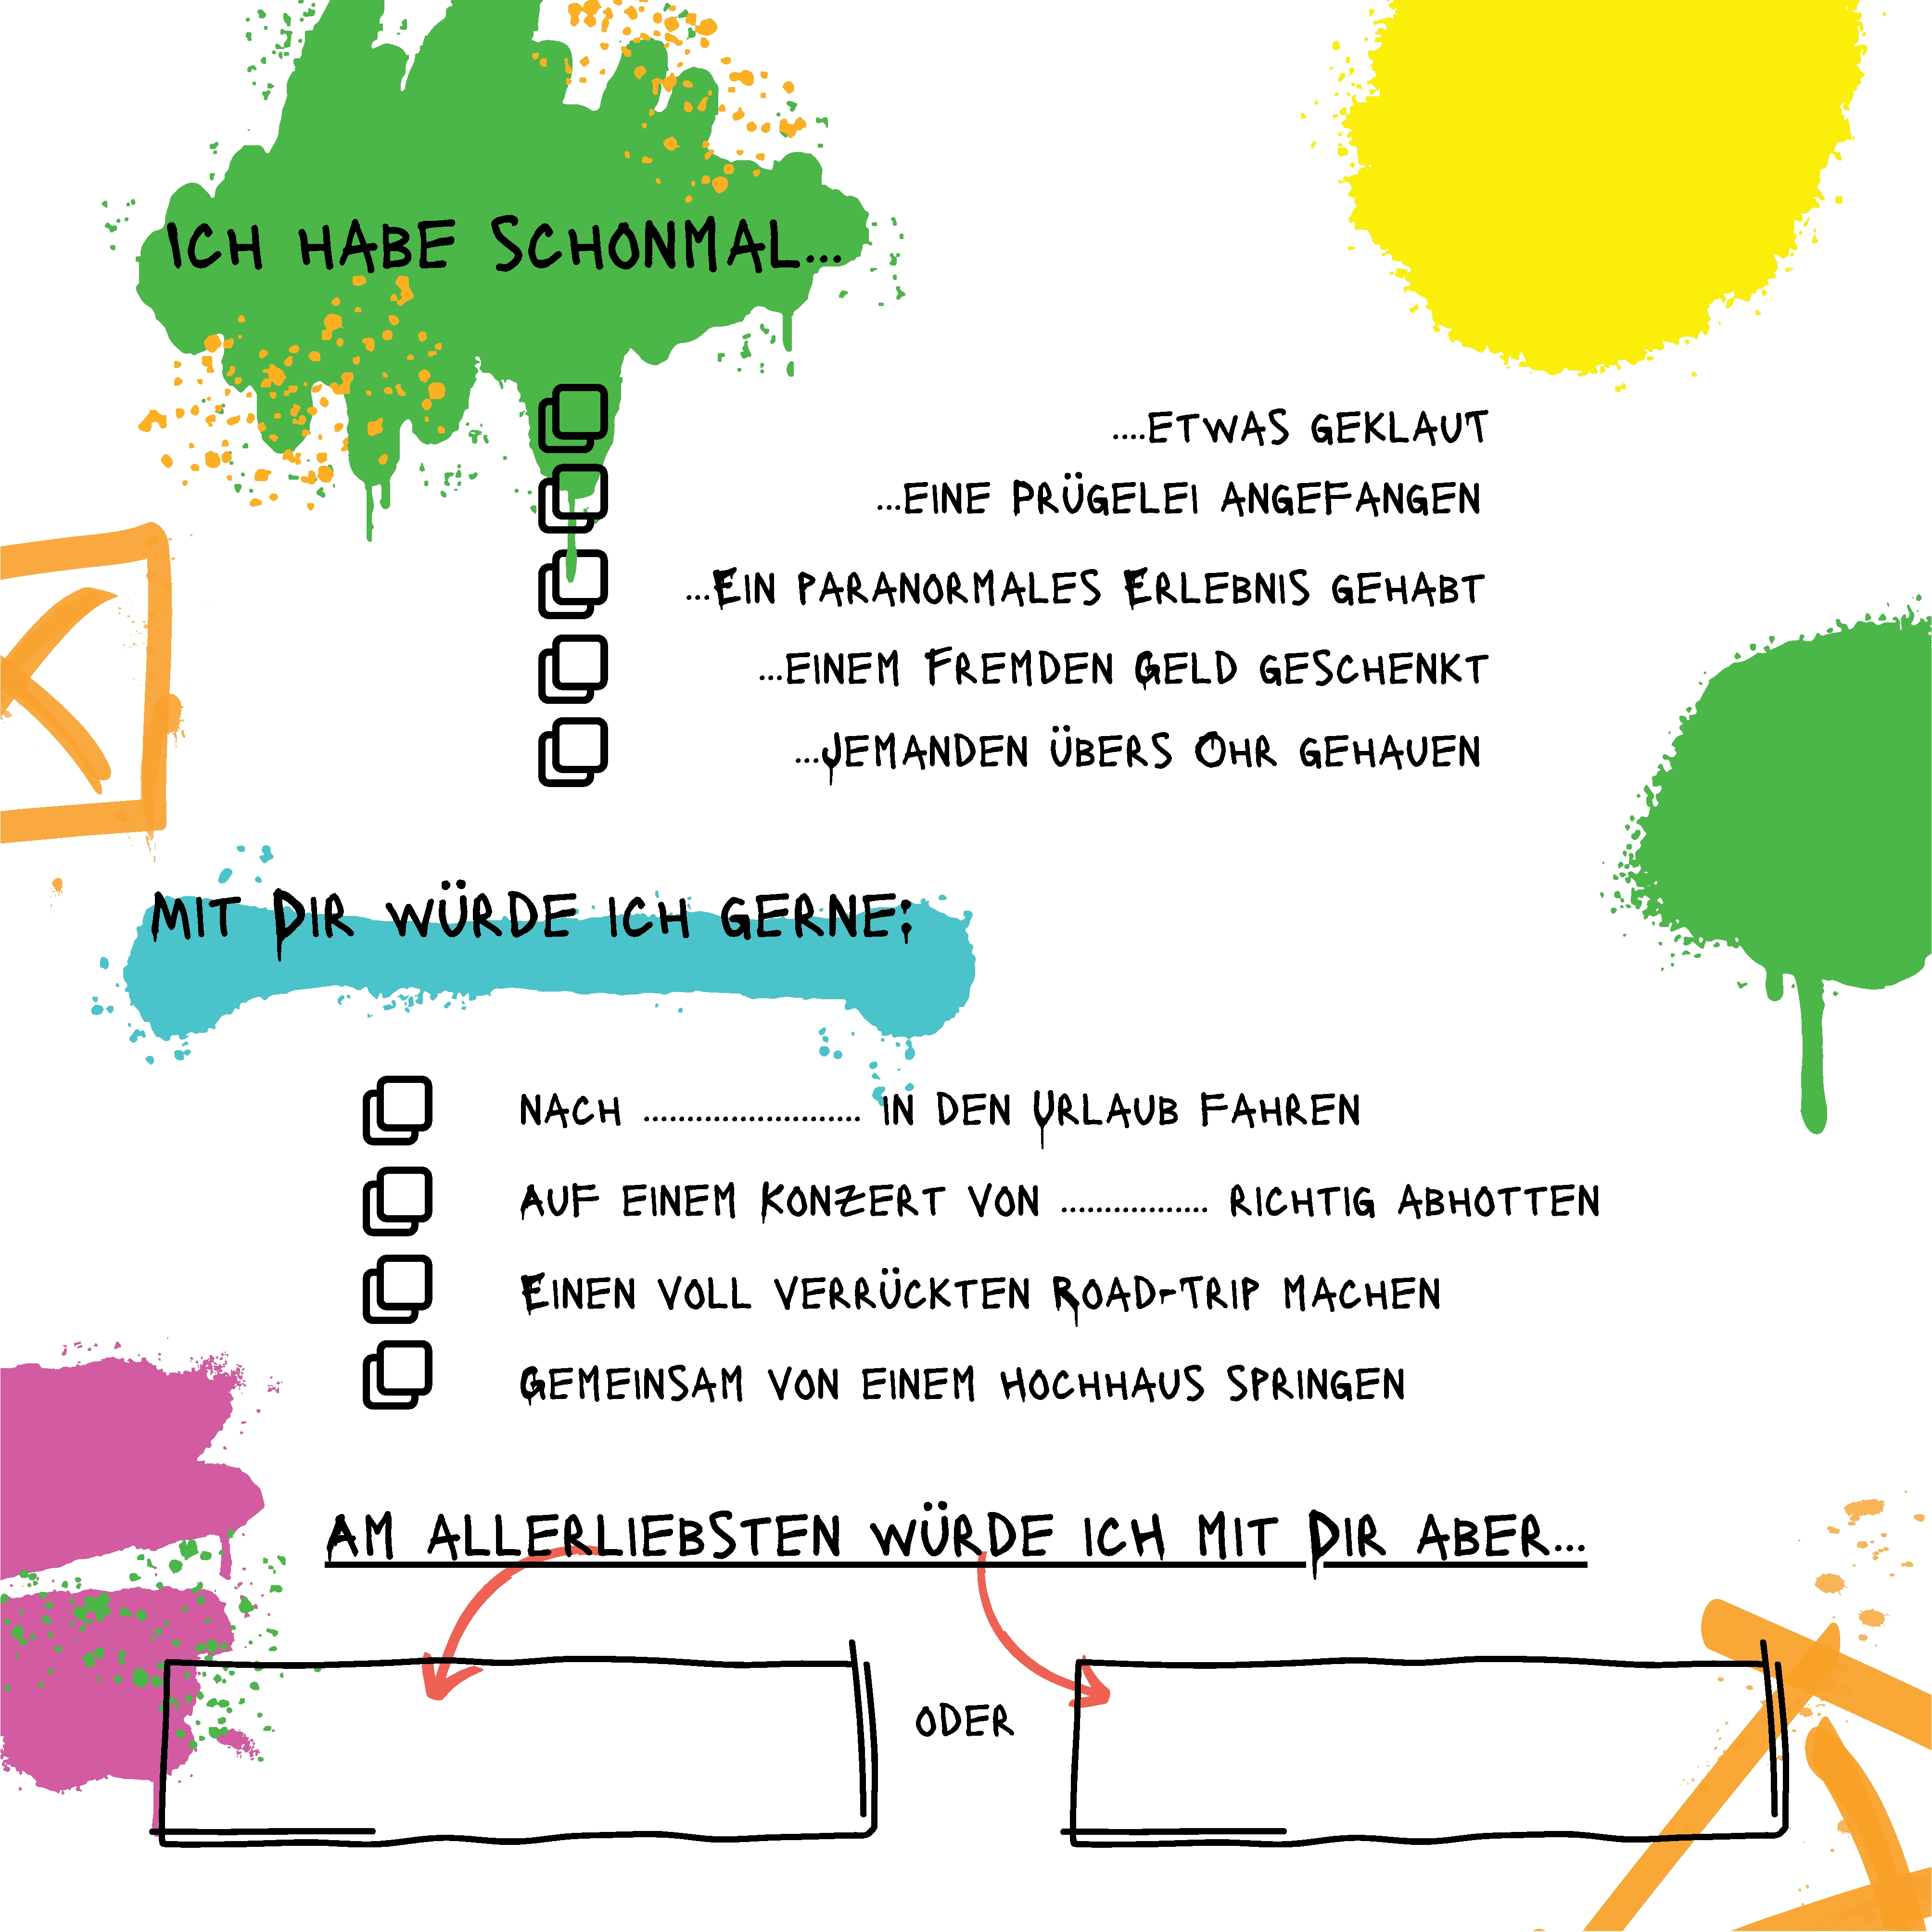 Ich habe Schonmal...
....etwas geklaut
...eine Prügelei angefangen
...Ein paranormales Erlebnis gehabt
...einem Fremden Geld geschenkt
...Jemanden übers Ohr gehauen
Mit Dir würde ich gerne:
nach .......................... in den Urlaub fahren
Auf einem Konzert von .................. richtig abhotten
Einen voll verrückten Road-Trip machen
Gemeinsam von einem Hochhaus springen
Am allerliebsten würde ich mit Dir aber...
oder